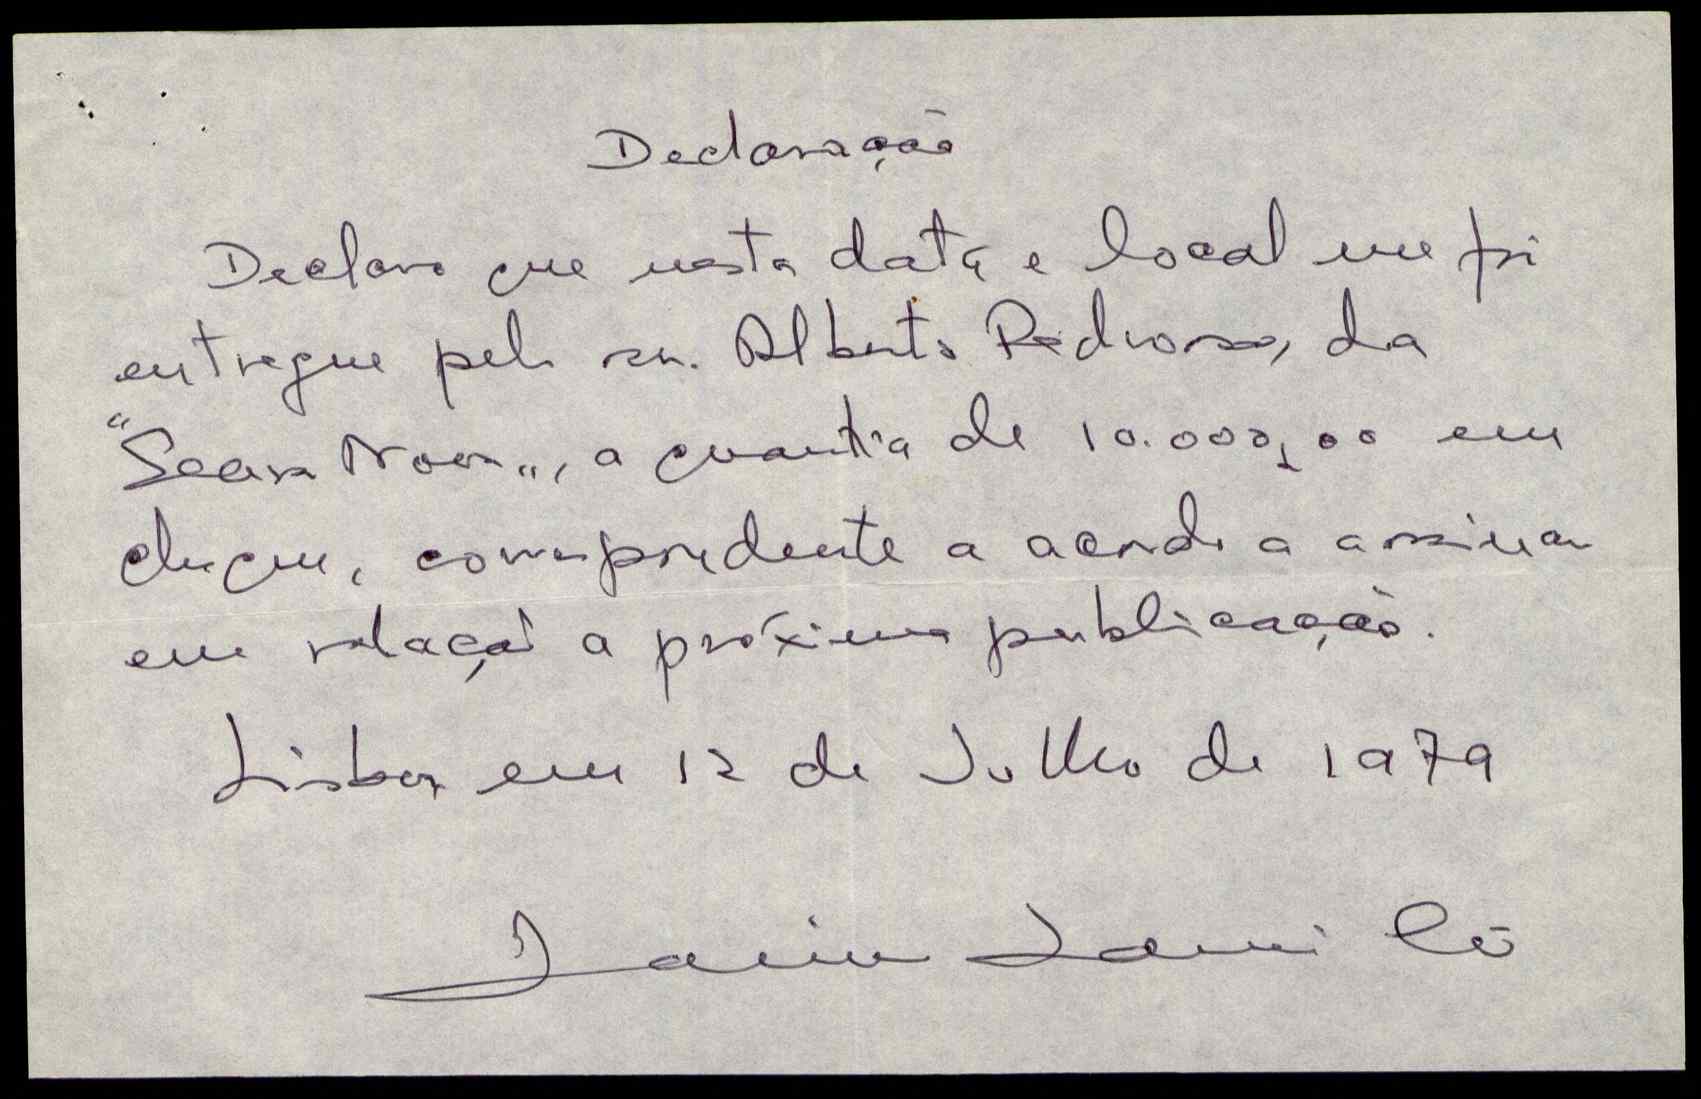 Declaração
Declaro que nesta data e local me foi
entregue pelo sr. Alberto Pedroso, da
"Seara Nova", a quantia de 10.000,00 em
cheque, correspondente a acordo a assinar
em relação a próxima publicação.
Lisboa em 12 de Julho de 1979